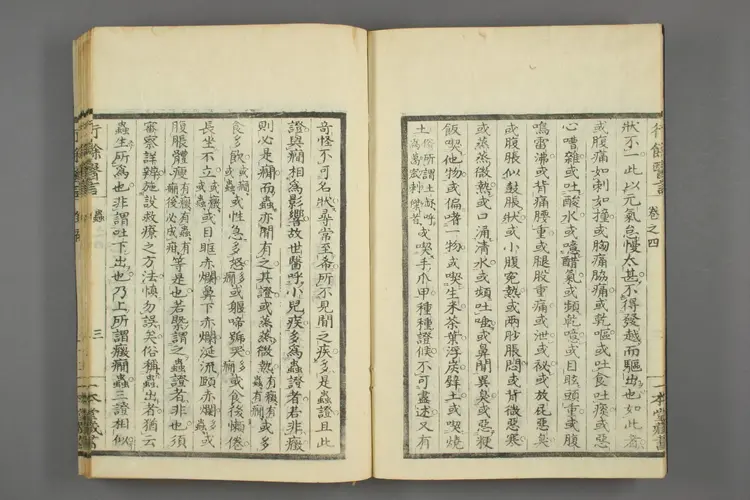 行餘醫言 卷之四
狀不一此以元氣怠慢太甚不得發越而驅出也如此者
或腹痛如刺如撞或胸痛脇痛或乾嘔或吐食吐痰或惡
心嘈雜或吐酸水或噫醋氣或頻乾噫或目眩頭重或腹
鳴雷沸或背痛腰重或腿股重痛或泄或祕或放屁惡臭
或腹脹似鼓脹狀或小腹寃熱或兩胁脹悶或背微惡寒
或蒸蒸微熱或口涌清水或頻吐唾或鼻聞異臭或惡粳
飯喫他物或偏嗜一物或喫生米茶葉浮炭壁土或喫燒
土俗所謂土器呼 或喫手爪甲種種證候不可盡述又有
奇怪不可名狀尋常至希所不見聞之疾多是蟲證且此
證與癇相為影響故世醫呼小兒疾多為蟲證者若非癥
則必是癇而蟲亦間有之其證或蒸蒸微熱有癥有癇有蟲或多
食多飲或癇或蟲或性急多怒癇或軀啼䦨哭多癇或食後懶倦
長坐不立或癥或蟲或目眶赤爛鼻下赤爛涎流頤赤爛或蟲或
腹脹體瘦有癥有蟲有癇後必成疳等是也若槩謂之蟲證者非也須
審察詳辨施設救療之方法慎勿誤矣俗稱蟲出者猶云
蟲生所為也非謂吐下出也乃上所謂癥癇蟲三證相似
行餘醫言 蟲 三
一本堂藏書